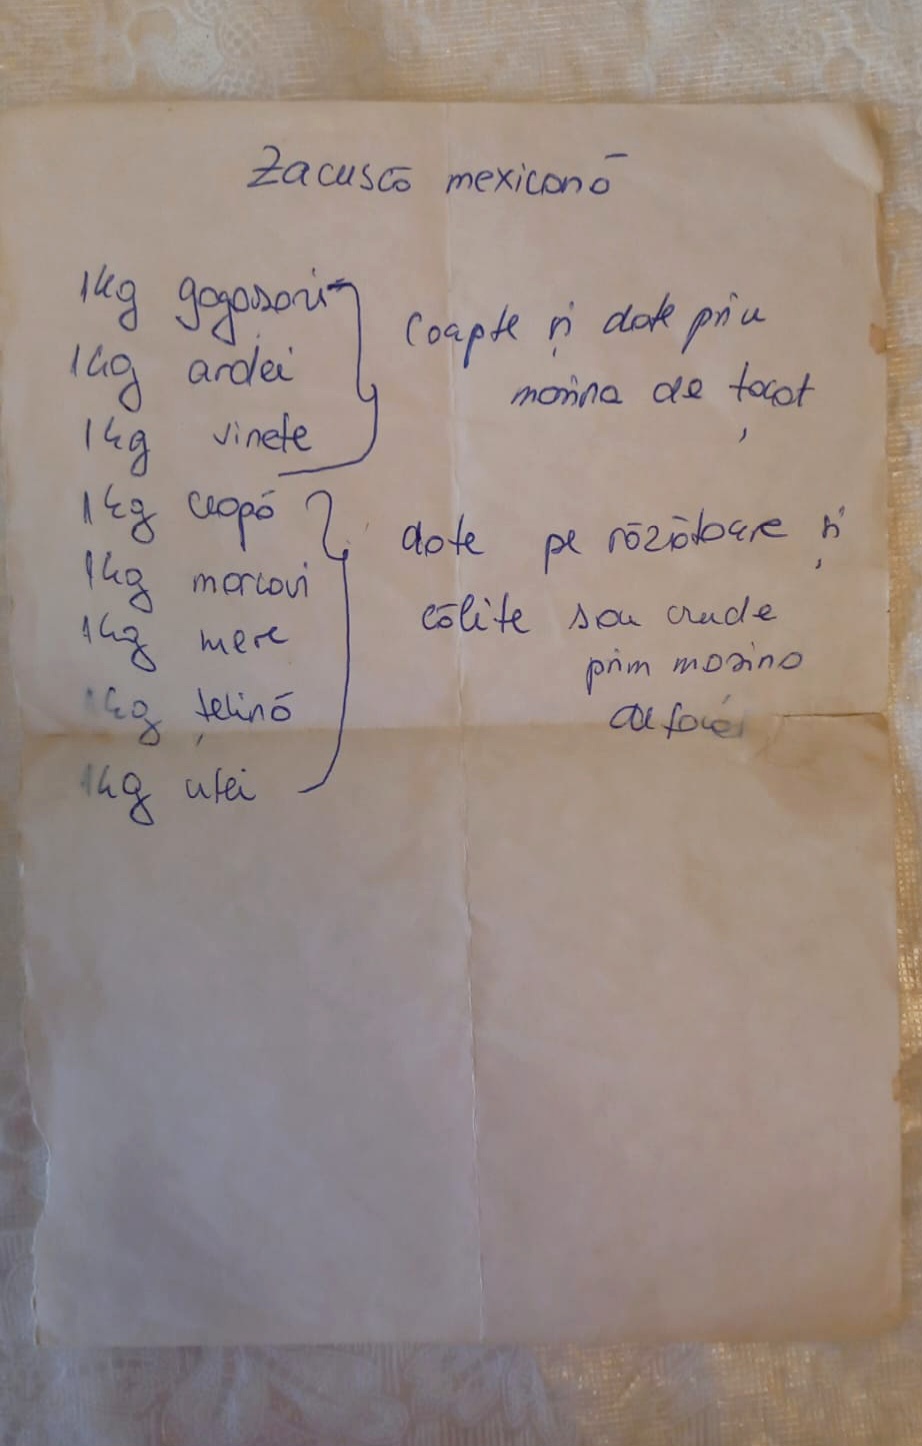 Zacuscă mexicană
1kg gogosari
1kg ardei
1kg vinete
Coapte și date prin
mașina de țocat
1kg ceapă
1kg morcovi
1kg mere
1kg țelină
1kg ulei
date pe răzătoare și
călite sau crude
prim mașina
de tocat